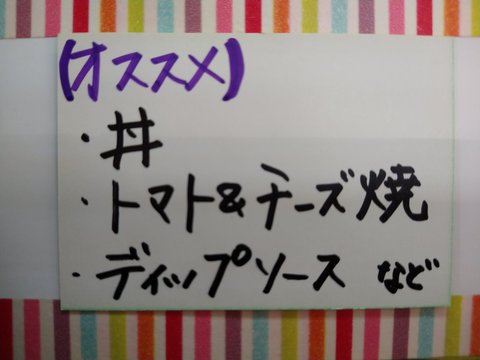 (オススメ)
・丼
・トマト&チーズ焼
・ディップソース など